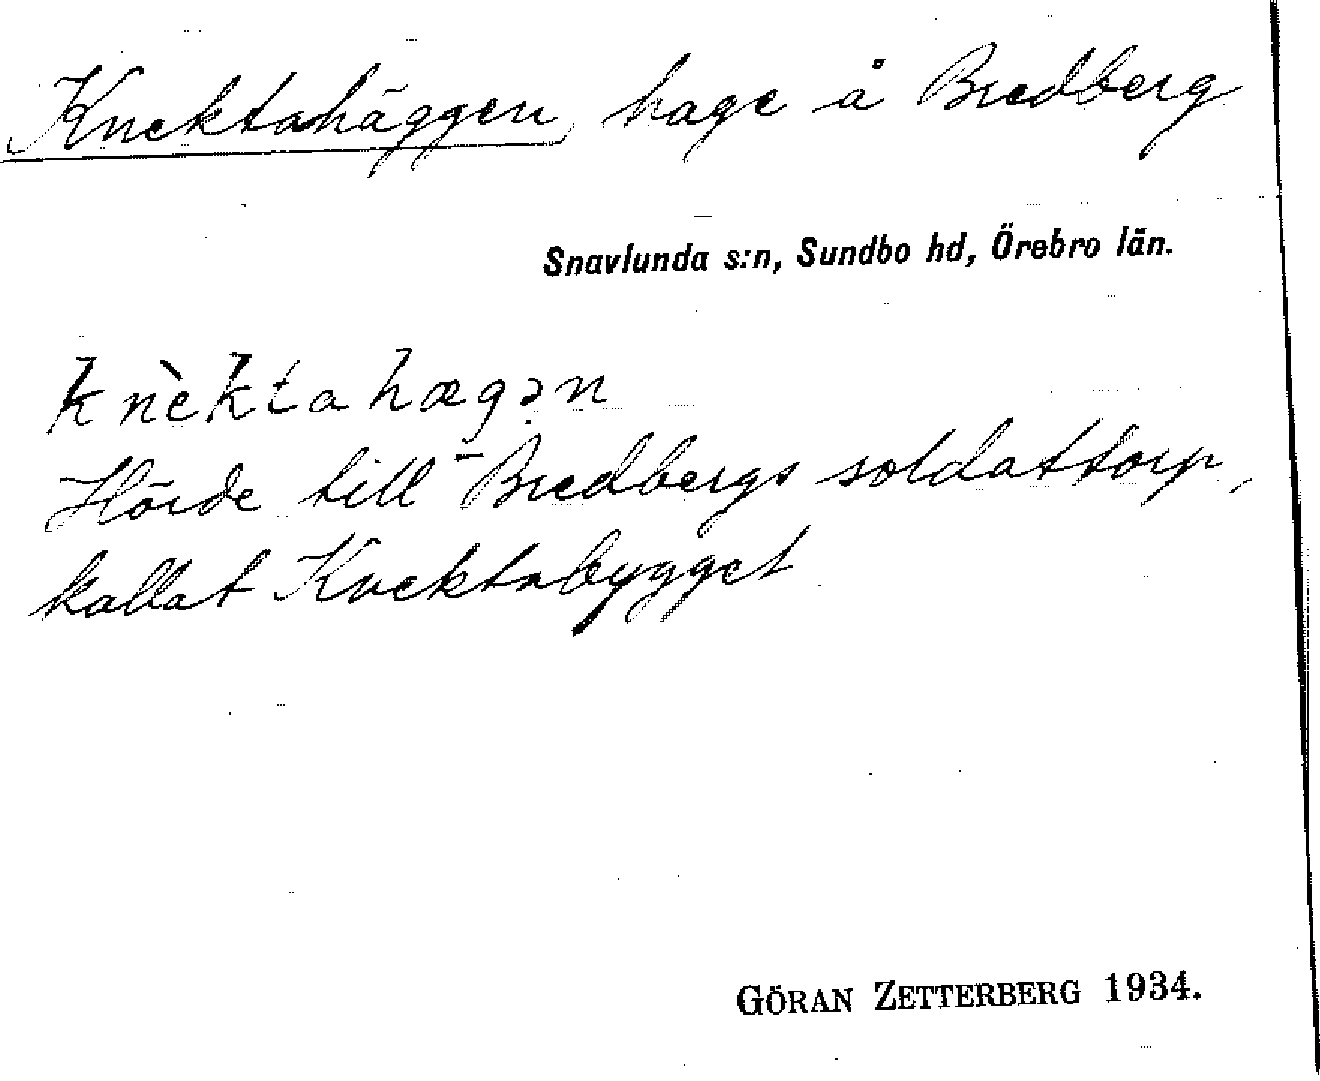 Knektahäggen, hage å Bredberg
Snavlunda s:n, Sundbo hd, Örebro län.
knèktahægən
Hörde till Bredbergs soldattorp,
kallat Knektabygget
GÖRAN ZETTERBERG 1934.